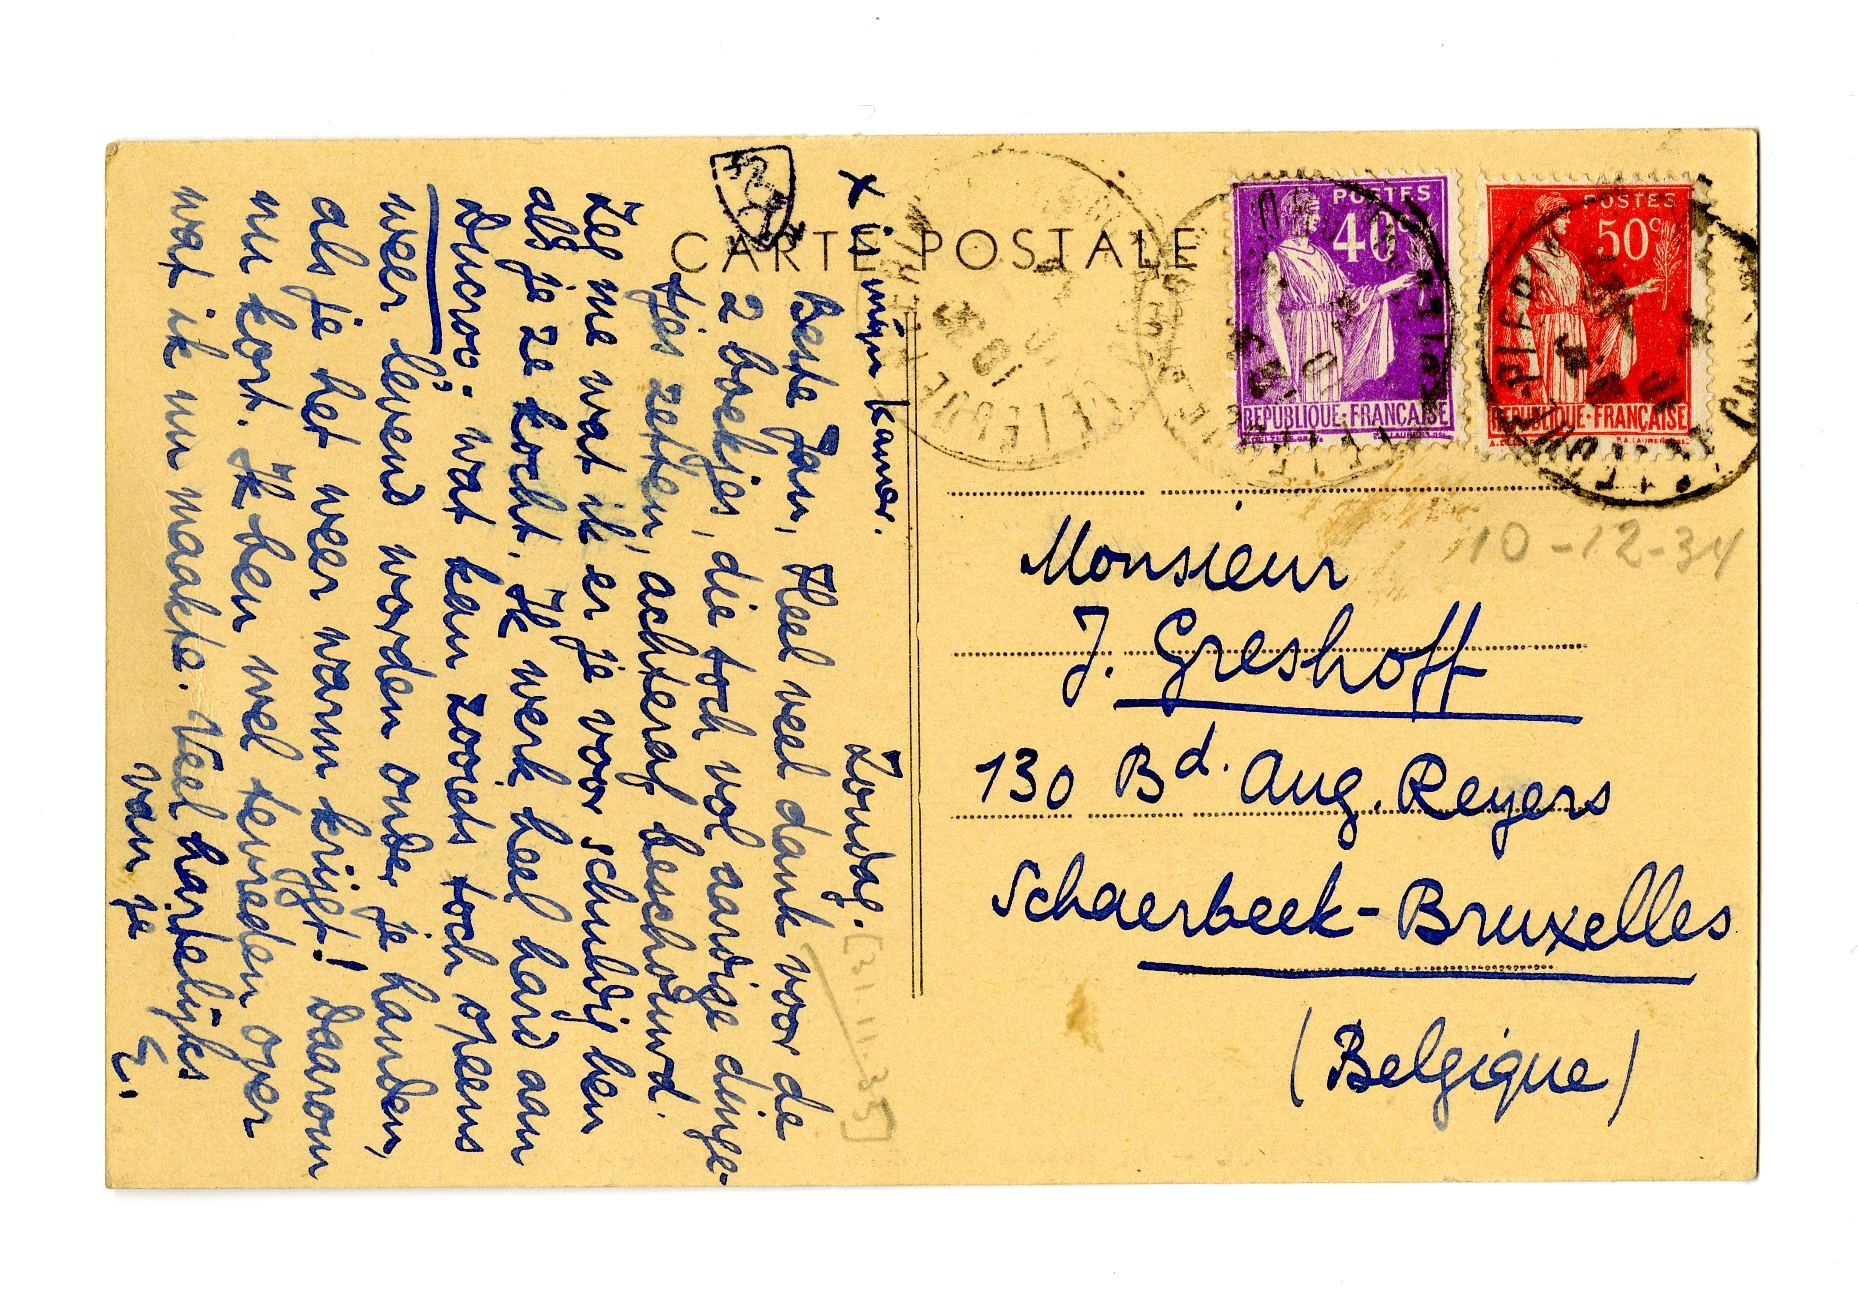 CARTE POSTALE
x in mijn kamer.
Zondag.
[3.11.35]
Beste Jan, Heel veel dank voor de
2 boekjes, die toch vol aardige dinge-
tjes zetten, achteraf beschouwd.
Zeg me wat ik er je voor schuldig ben
als je ze kocht. Ik werk heel hard aan
Ducroo. Wat kan zooiets toch opeens
weer lévend worden onder je handen,
als je het weer warm krijgt! Daarom
nu kort. Ik ben wel tevreden over
wat ik nu maakte. Veel hartelijks
van je
E.
POSTES
40c
REPUBLIQUE·FRANÇAISE
POSTES
50c
REPUBLIQUE·FRANÇAISE
10-12-34
Monsieur
J. Greshoff
130 Bd. Aug. Reyers
Schaerbeek-Bruxelles
(Belgique)